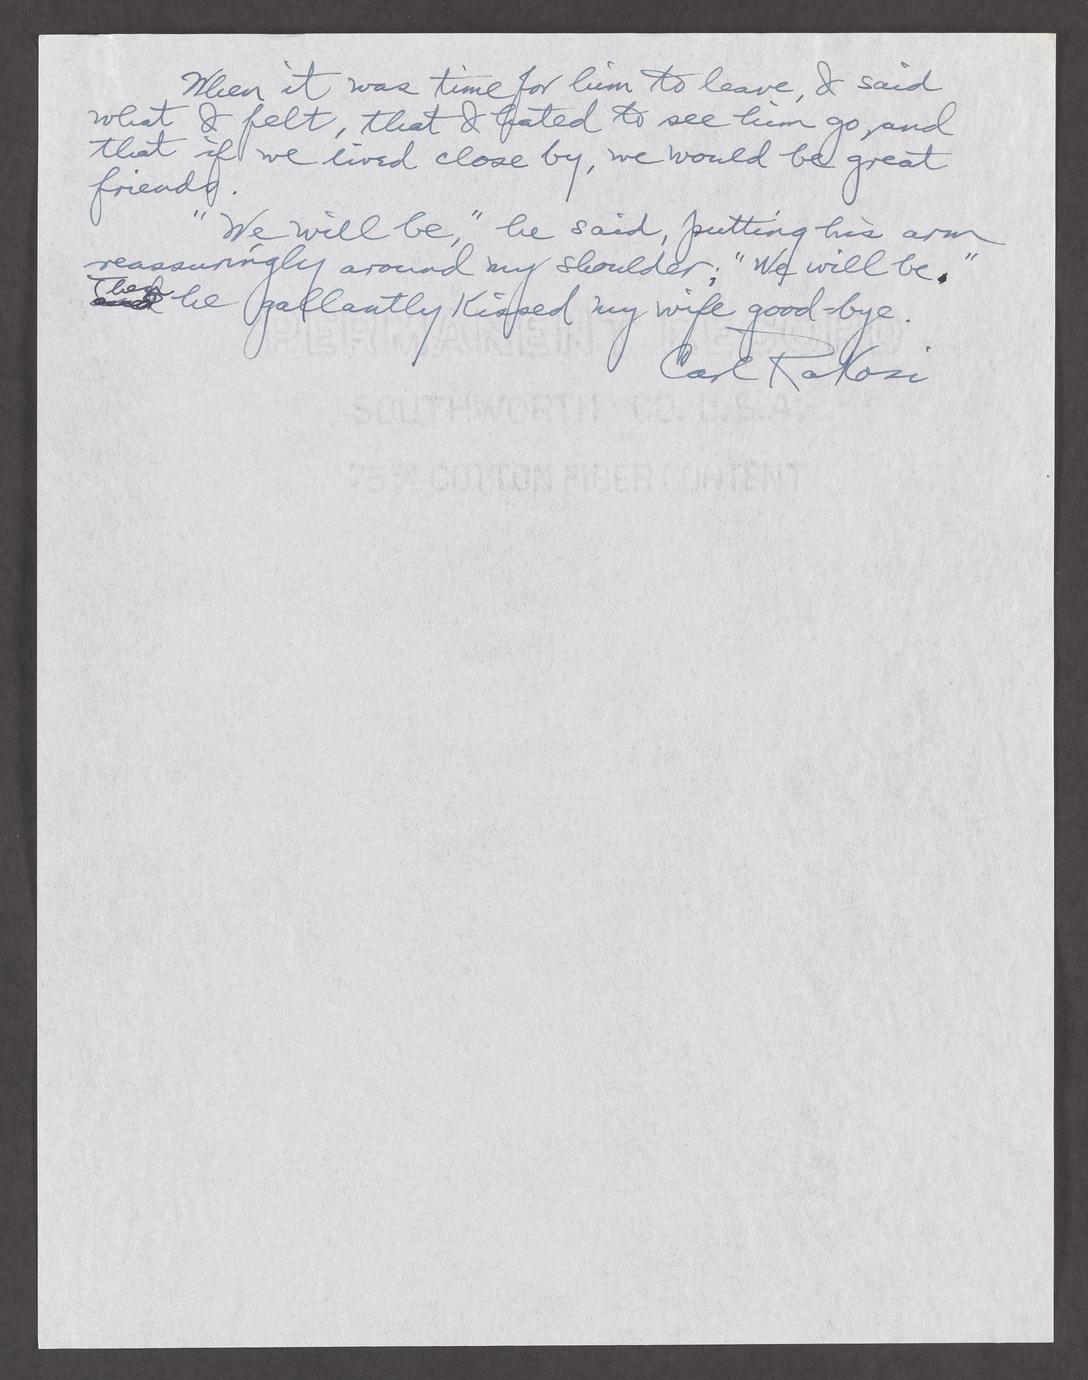 When it was time for him to leave, I said
what I felt, that I hated to see him go, and
that if we lived close by, we would be great
friends.
"We will be," he said, putting his arm
reassuringly around my shoulder; "We will be."
Then he gallantly kissed my wife good-bye.
Carl Rakosi
PERMANENT RECORD
SOUTHWORTH CO. U.S.A.
75% COTTON FIBER CONTENT